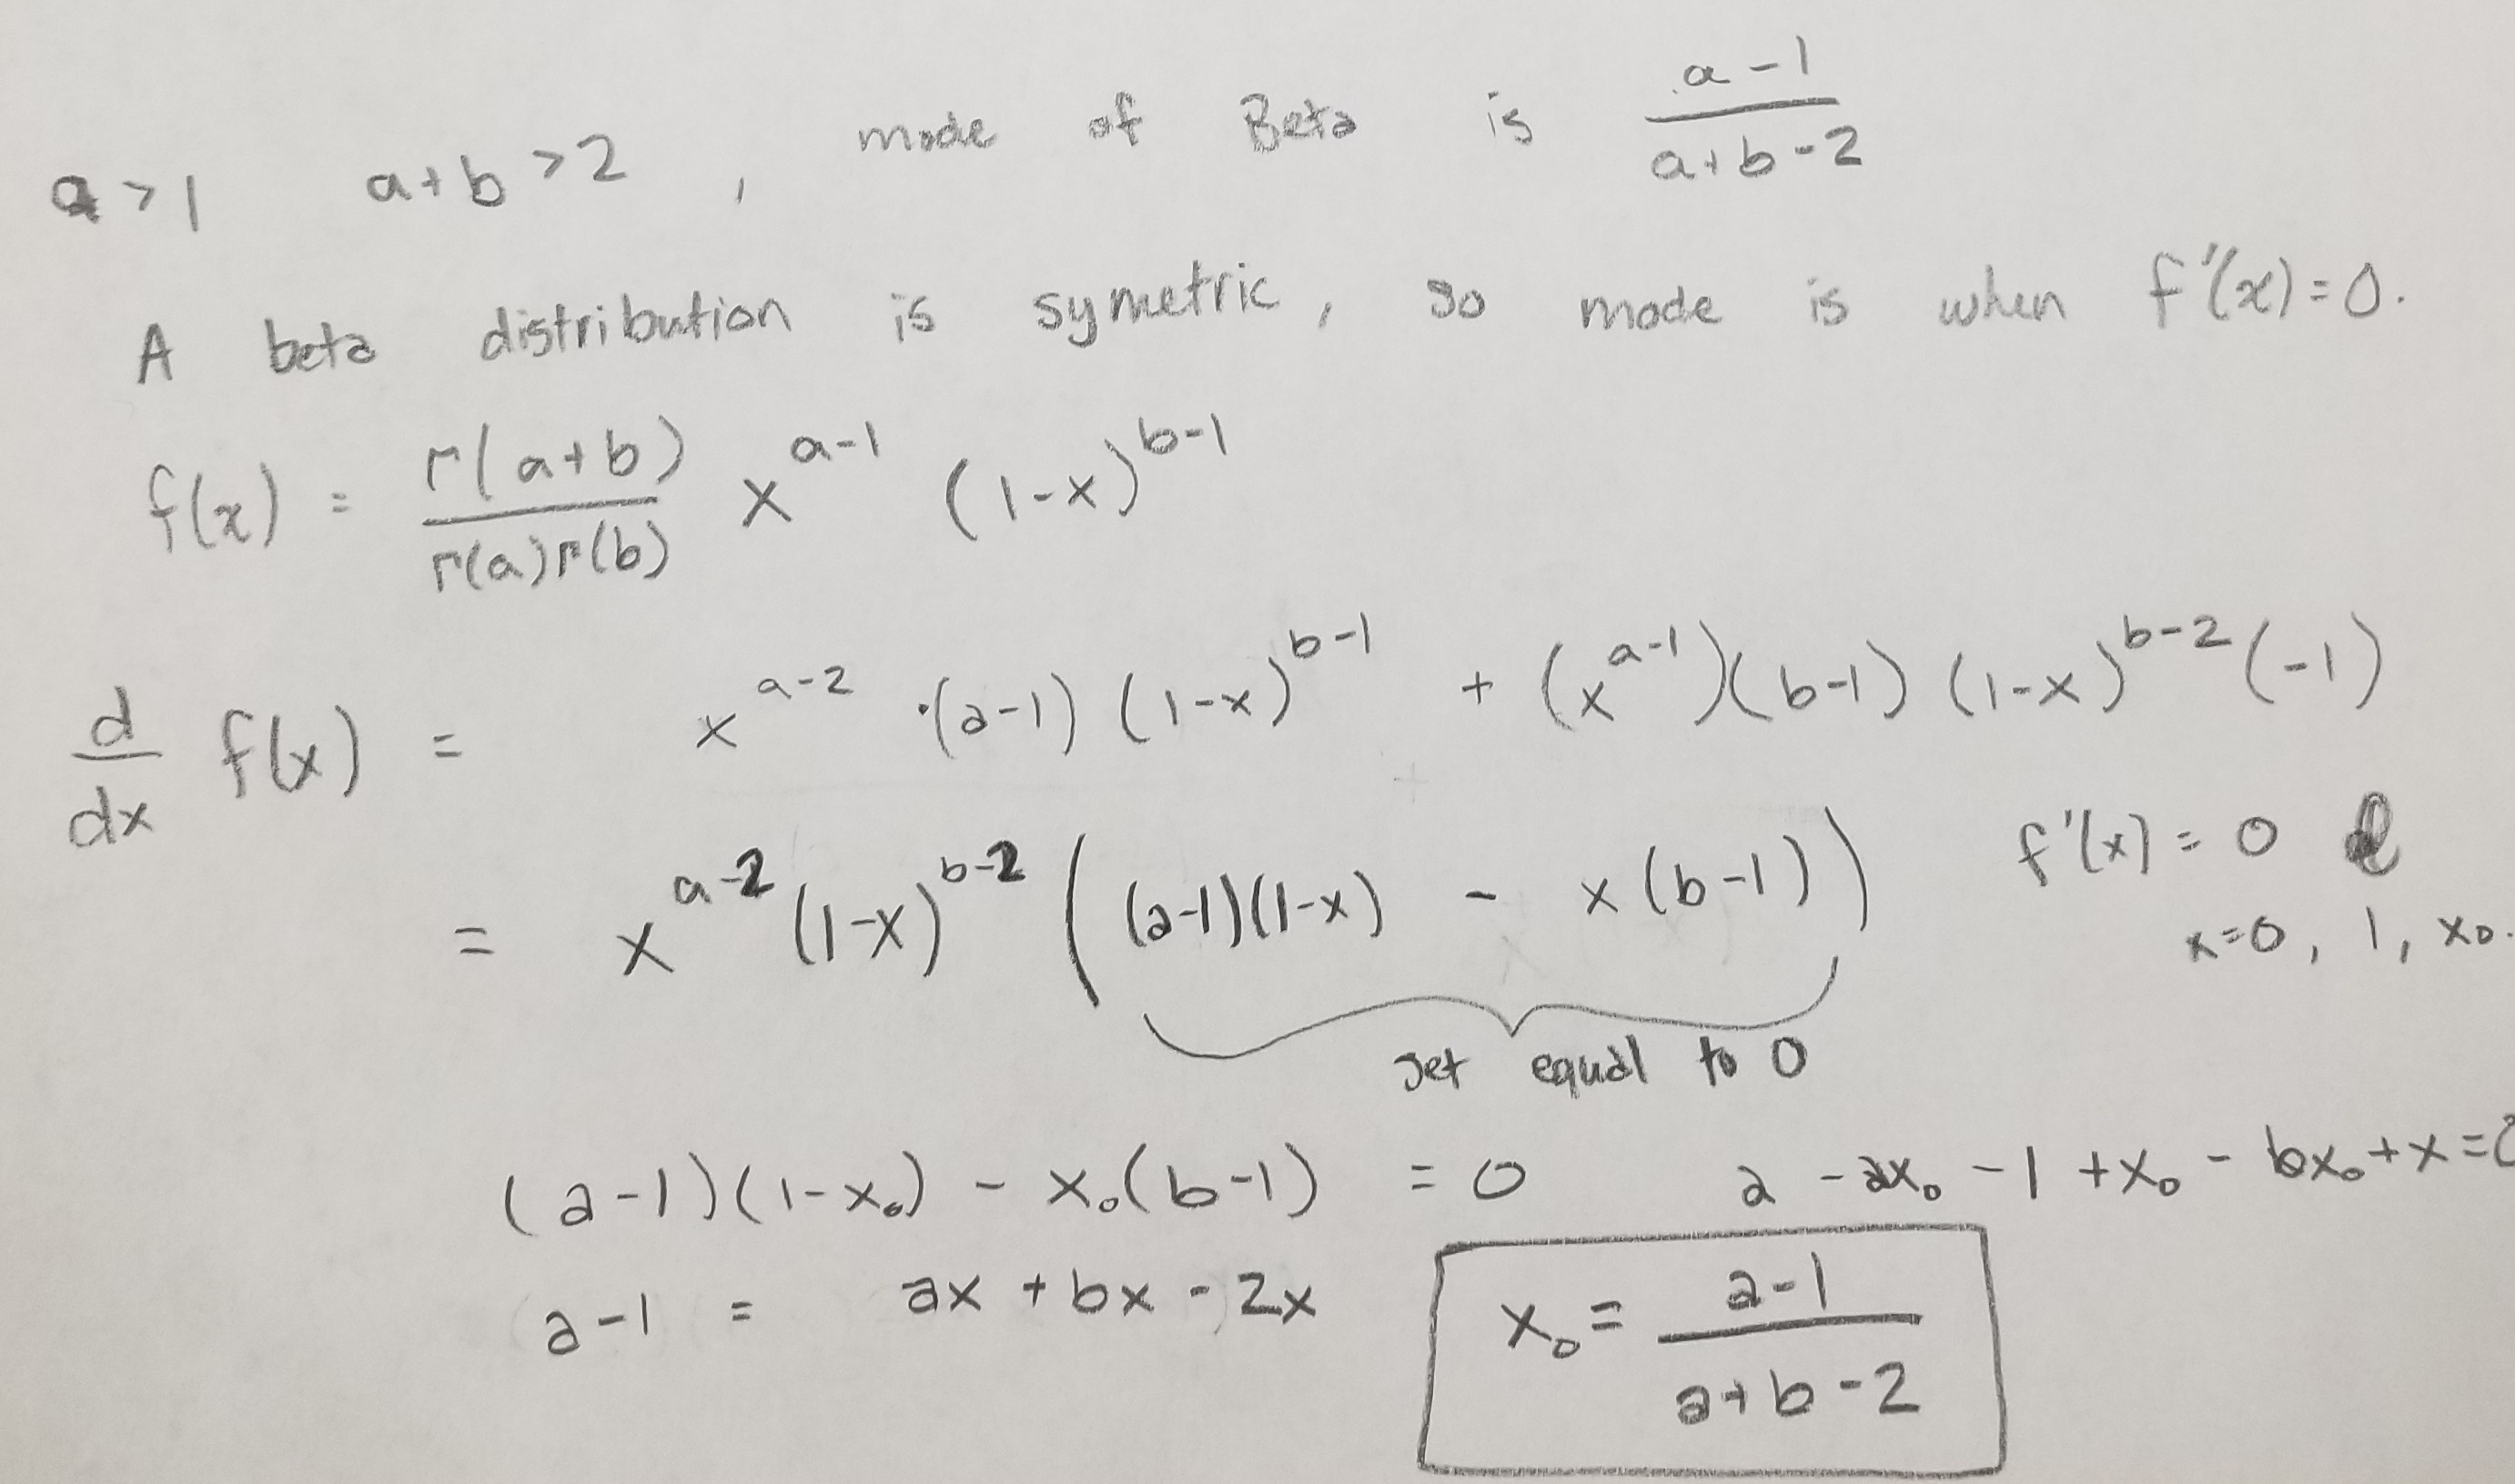 a > 1 a+b > 2 , mode of Beta is (a-1)/(a+b-2)
A beta distribution is symetric, so mode is when f'(x)=0.
f(x) = Γ(a+b)/(Γ(a)Γ(b)) x^(a-1) (1-x)^(b-1)
d/dx f(x) = x^(a-2) ·(a-1) (1-x)^(b-1) + (x^(a-1))(b-1) (1-x)^(b-2) (-1)
= x^(a-2) (1-x)^(b-2) ( (a-1)(1-x) - x(b-1) ) f'(x) = 0
x=0, 1, x₀.
set equal to 0
(a-1)(1-x₀) - x₀(b-1) = 0 a - ax₀ - 1 + x₀ - bx₀ + x = 0
a-1 = ax + bx - 2x
x₀ = (a-1)/(a+b-2)